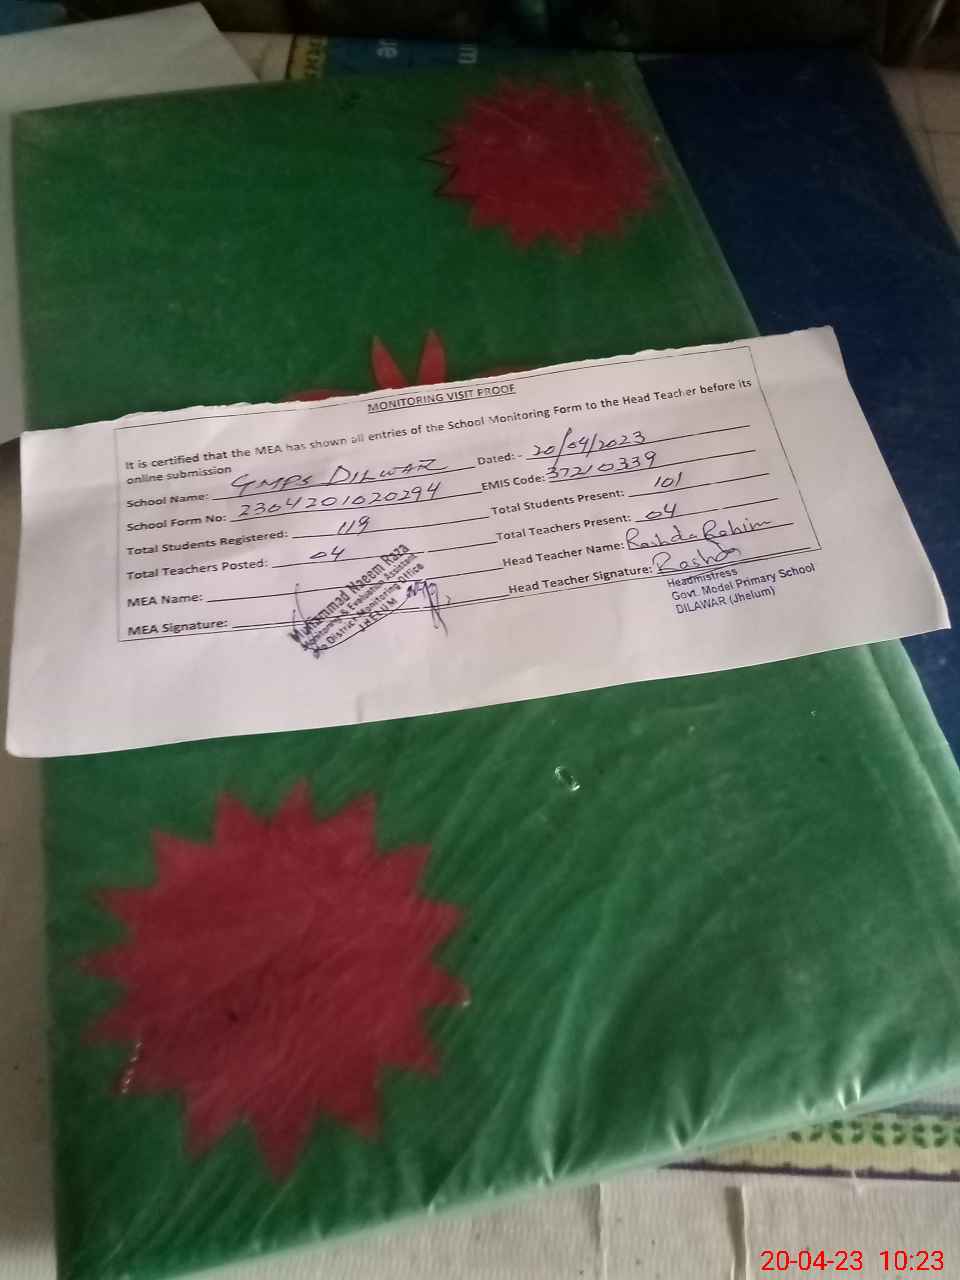 MONITORING VISIT PROOF
It is certified that the MEA has shown all entries of the School Monitoring Form to the Head Teacher before its
online submission
School Name: GMPS DILWAR Dated: - 20/04/2023
School Form No: 2304201020294 EMIS Code: 37210339
Total Students Registered: 119 Total Students Present: 101
Total Teachers Posted: 04 Total Teachers Present: 04
MEA Name: Head Teacher Name: Rashda Rahim
MEA Signature: Head Teacher Signature: Rashda
Muhammad Naeem Raza
Monitoring & Evaluation Assistant
o/o District Monitoring Office
JHELUM
Headmistress
Govt. Model Primary School
DILAWAR (Jhelum)
20-04-23 10:23